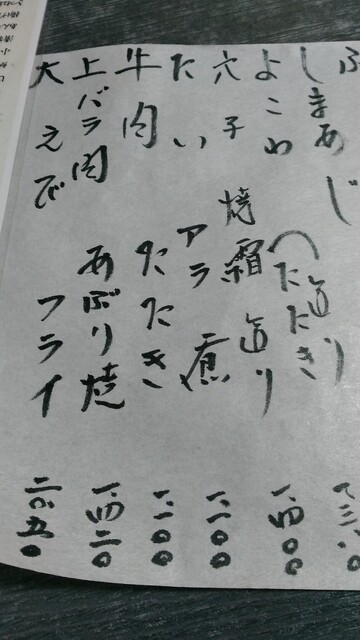 しまあじ
よこわ 造り (たたき
穴子 焼霜造り 一、四〇〇
たい アラ煮 一、二〇〇
牛肉 たたき 一、二〇〇
上バラ肉 あぶり焼 一、四二〇
大えび フライ 二、〇五〇